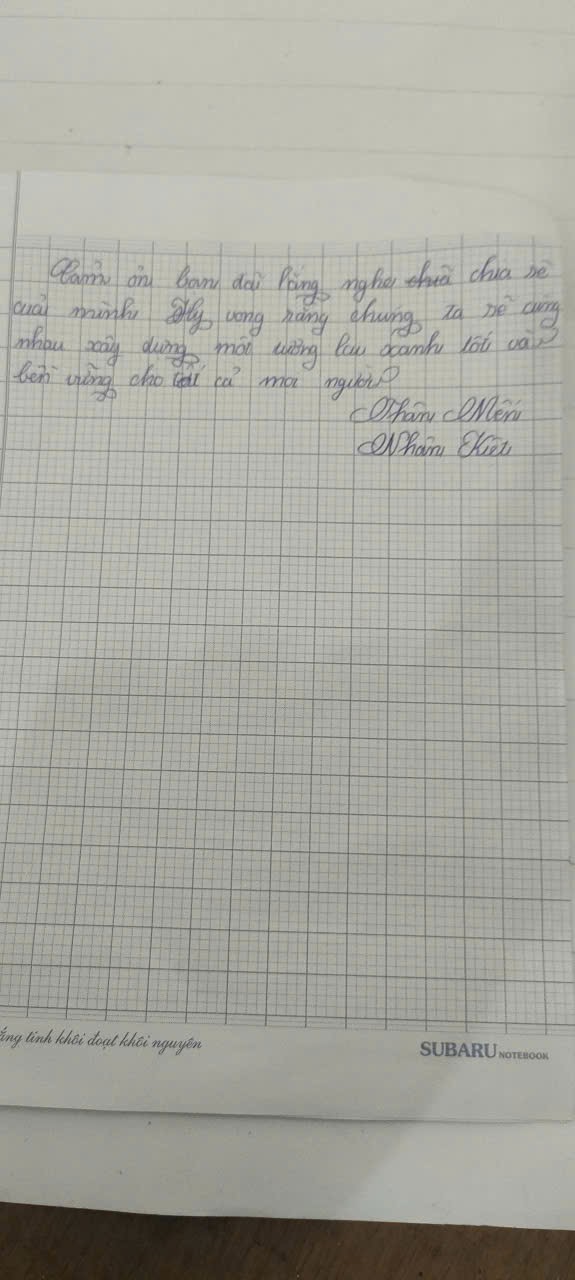 Cảm ơn bạn đã lắng nghe chia sẻ
của mình Hy vọng rằng chúng ta sẽ cùng
nhau xây dựng một tương lai xanh tốt và
bền vững cho tất cả mọi người
Thân Mến
Nhân Kiệt
ắng tinh khôi đoạt khôi nguyên
SUBARU NOTEBOOK